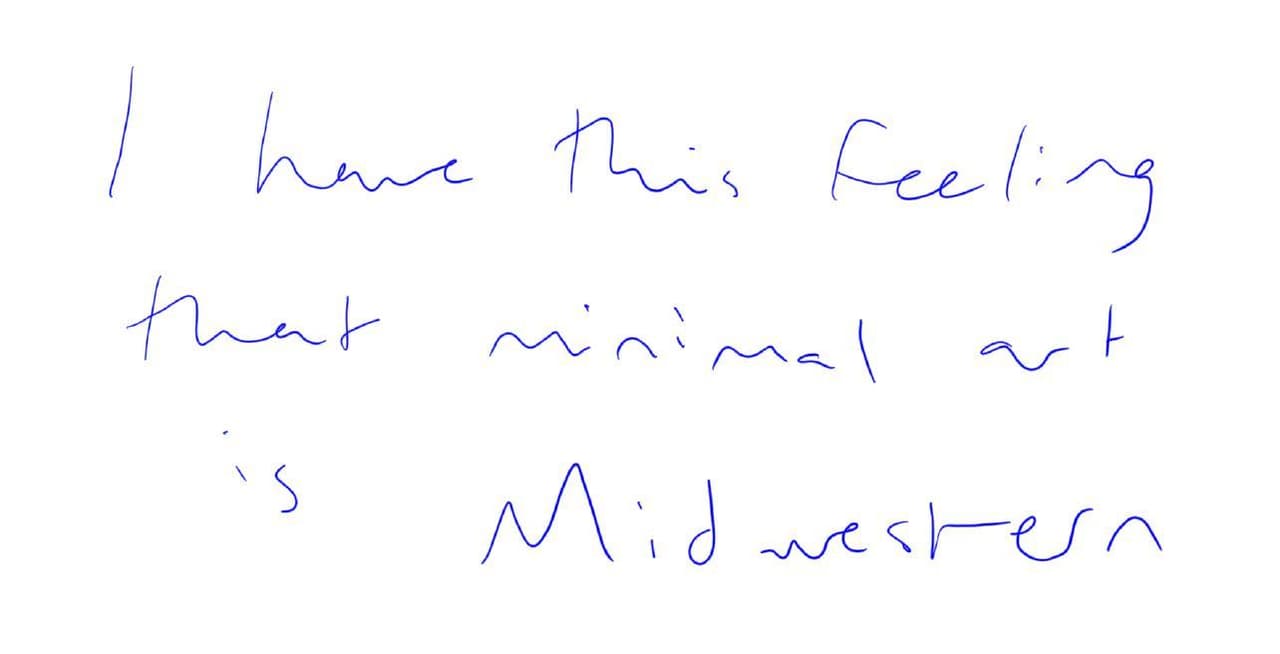 I have this feeling
that minimal art
is Midwestern